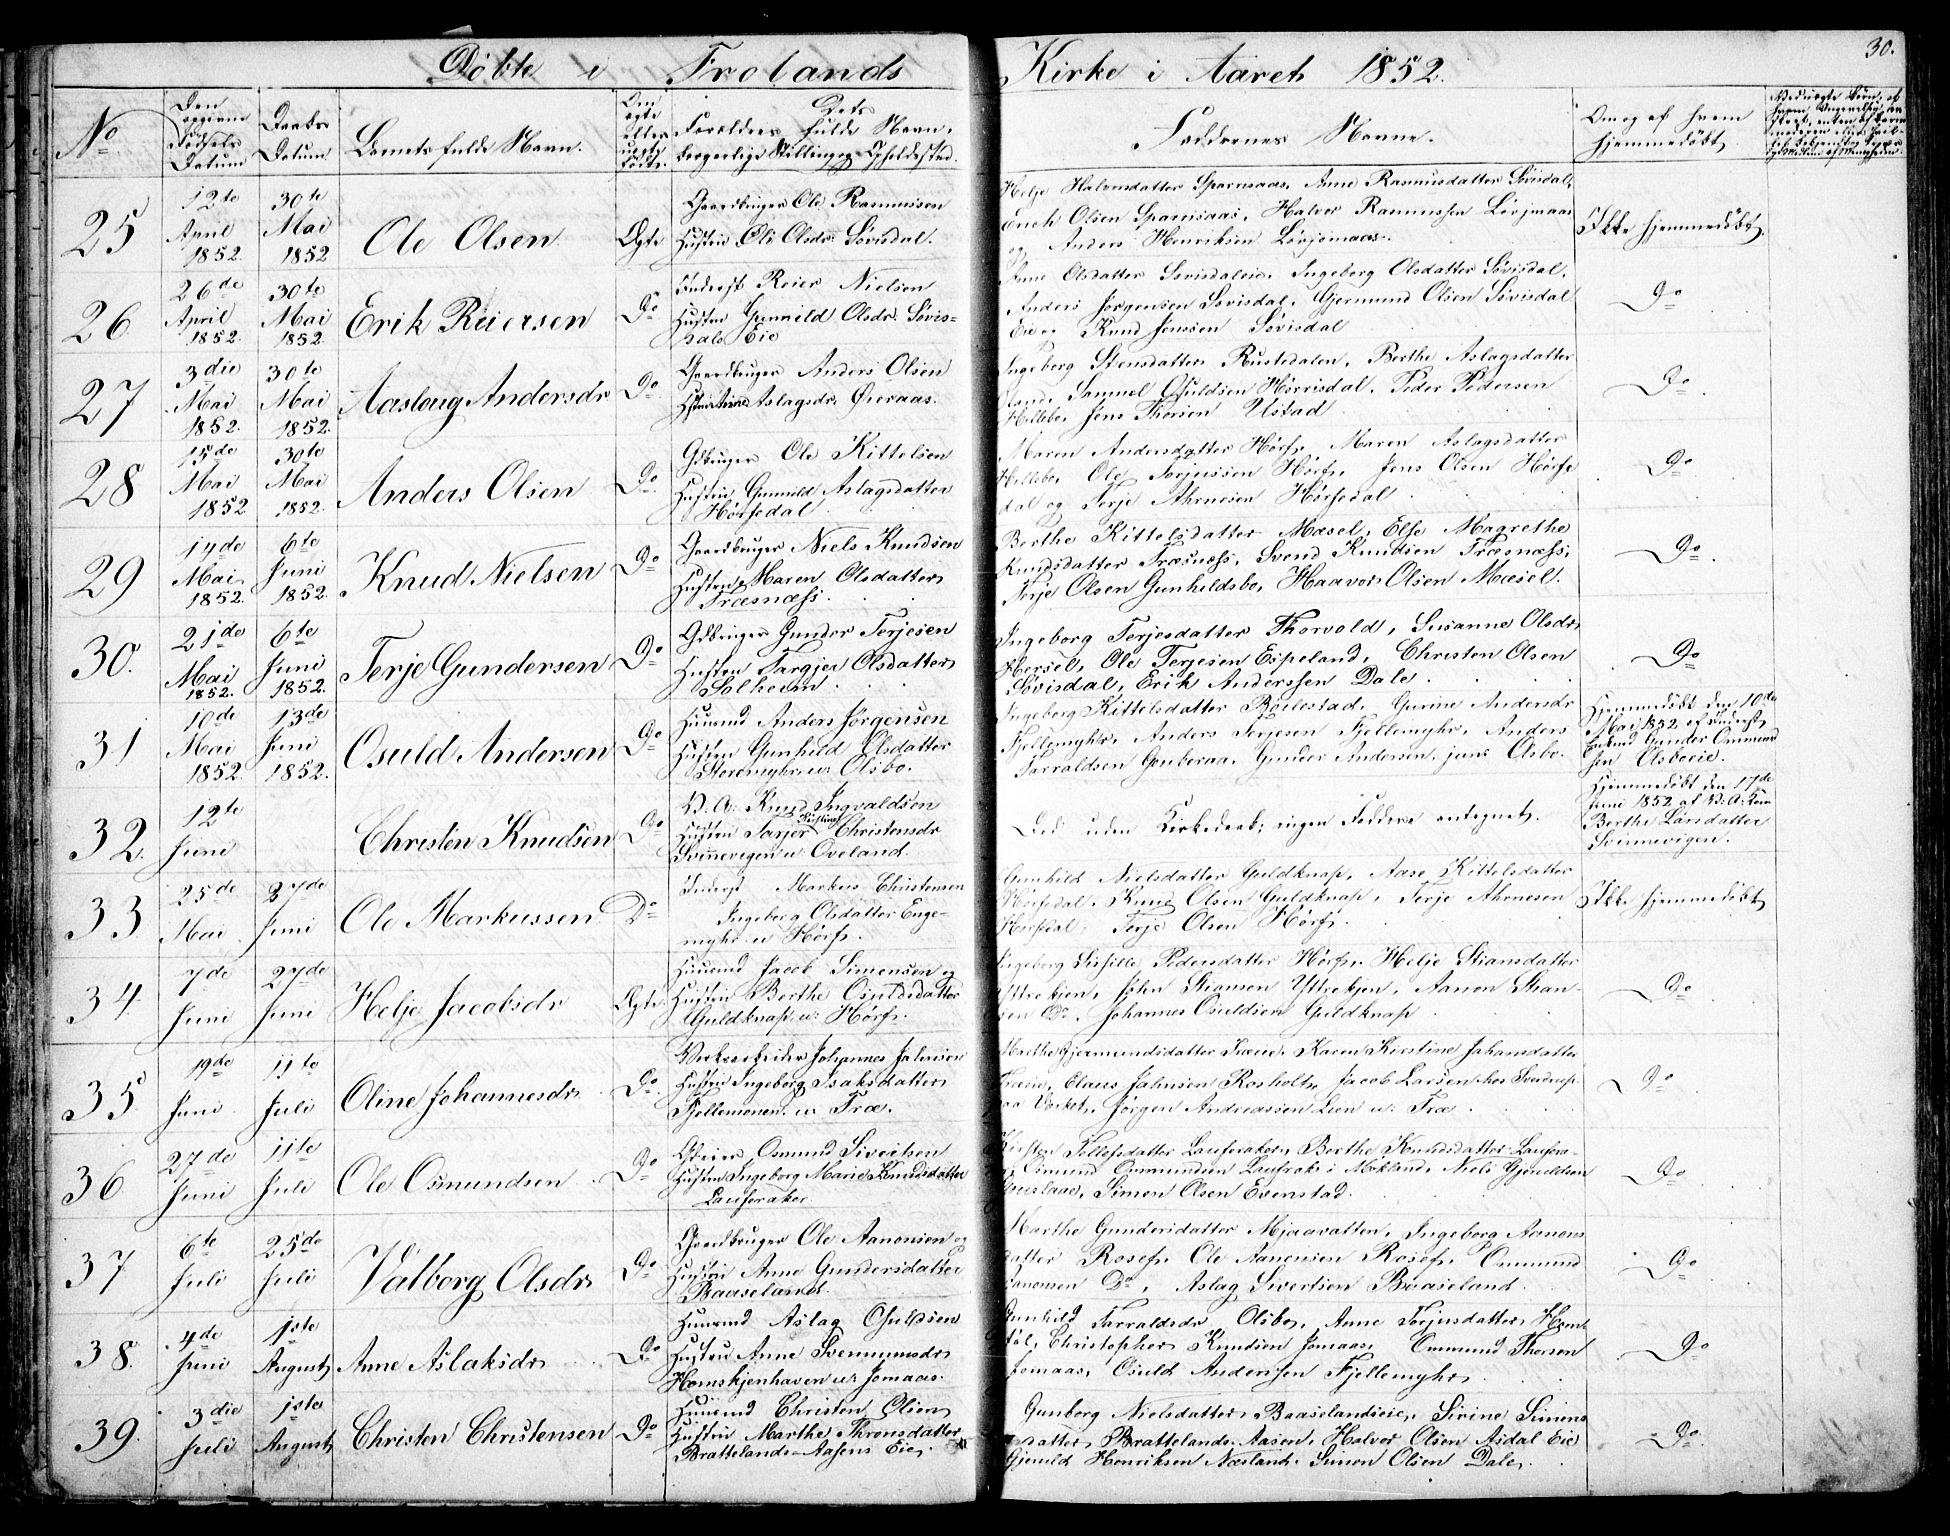 Døbte i Frolands Kirke i Aaret 1852.
30.
No
Den opgivne Fødsels Datum
Daabs Datum
Barnets fulde Navn.
Om ægte eller uægte født.
Dets Forældres fulde Navn, borgerlige Stilling og Opholdssted.
Faddernes Navne.
Om og af hvem hjemmedøbt.
25
12te April 1852.
30te Mai 1852
Ole Olsen
Ægte
Gaardbruger Ole Rasmussen
Hustru Oli Olsdr. Søvisdal.
Helje Halvorsdatter Sparsaas, Anne Rasmusdatter Søvisdal,
Erich Olsen Sparsaas, Halvor Rasmussen Løvjomaas
og Anders Henriksen Løvjomaas.
Ikke hjemmedøbt.
26
26de April 1852.
30te Mai 1852.
Erik Reiersen
Do
Inderst Reier Nielsen
Hustru Gunnild Olsdr. Søvis-
dals Eie
Anne Olsdatter Søvisdaleie, Ingeborg Olsdatter Søvisdal,
Anders Jørgensen Søvisdal, Gjermund Olsen Søvisdal
Eie og Knud Jensen Søvisdal
Do
27
3die Mai 1852.
30te Mai 1852.
Aaslaug Andersdr
Do
Gaardbruger Anders Olsen
Aslagsdr. Øieraas.
Ingeborg Stensdatter Rustedalen, Berthe Aslagsdatter
Samuel Osuldsen Hørrisdal, Peder Pedersen
Hillebo, Jens Thorsen Ustad
Do
28
15de Mai 1852
30te Mai 1852.
Anders Olsen
Do
Gdbruger Ole Kittelsen
Hustru Gunnild Aslagsdatter
Hørfsedal
Maren Andersdatter Hørfs, Maren Aslagsdatter
Hillebo, Ole Torjussen Hørfs, Jens Olsen Hørfse
dal og Terje Ahrnesen Hørfsedal
Do
29
14de Mai 1852.
6te Juni 1852.
Knud Nielsen
Do
Gaardbruger Niels Knudsen
Hustru Maren Olsdatter
Træsnæss.
Berthe Kittelsdatter Mæsel, Else Magrethe
Knudsdatter Træsnæss, Svend Knudsen Træsnæss,
Terje Olsen Gunhildsbo, Haavor Olsen Mæsel.
Do
30.
21de Mai 1852.
6te Juni 1852.
Terje Gundersen
Do
Gdbruger Gunder Terjesen
Hustru Targjer Olsdatter
Solheim
Ingeborg Terjesdatter Thorvold, Susanne Olsdr
Hersel, Ole Terjesen Espeland, Christen Olsen
Søvisdal, Erik Anderssen Dale.
Do
31
10de Mai 1852.
13de Juni 1852.
Osuld Andersen
Do
Huusmd Anders Jørgensen
Hustru Gunhild Olsdatter
Storemyhr u: Olsbo.
Ingeborg Kittelsdatter Bøilestad, Gurine Andersdr
Fjellemyhr, Anders Terjesen Fjellemyhr, Anders
Tarraldsen Gauberaa, Gunder Andersen, jun: Osbo.
Hjemmedøbt den 10de
Mai 1852 af Inderst
Gunder Ommund
sen Osboeie.
32.
12te Juni
Christen Knudsen
Do
V. A: Knud Ingvaldsen
Hustru Tarjer Kirstine Christensdr
Svinnevigen u: Oveland.
Død uden Kirkedaab; ingen Faddere antegnet.
Hjemmedøbt den 17de
Juni 1852 af V: A: Kone
Berthe Larsdatter
Svinnevigen.
33
25de Mai
27de Juni
Ole Markussen
Do
Inderst Markus Christensen
Ingeborg Olsdatter Enge-
myhr u Hørfs.
Gunhild Nielsdatter Guldknap, Aase Kittelsdatter
Hørfsdal, Knud Olsen Guldknap, Terje Ahrnesen
Hørfsdal, Terje Olsen Hørfs.
Ikke hjemmedøbt
34
7de Juni
27de Juni
Helje Jacobsdr
Ægte
Huusmd Jacob Simensen og
Hustru Berthe Osuldsdatter
Guldknap u: Hørfs.
Ingeborg Sissille Pedersdatter Hørfs, Helje Stiansdatter
Yttrekjen, John Stiansen Yttrekjen, Aanon Stian-
sen Do, Johannes Osuldsen Guldknap
Do
35
19de Juni
11te Juli
Oline Johannesdr
Do
Verksarbeider Johannes Johnsen
Hustru Ingeborg Isaksdatter
Fjellemonen u: Træ.
Marthe Gjermundsdatter Træeie, Karen Kirstine Johansdatter
Træeie, Claus Johnsen Rosholt, Jacob Larsen hos Sverdrup
paa Værket, Jørgen Andreassen Lien u: Træ
Do
36
27de Juni
11te Juli
Ole Osmundsen
Do
Osmund Sivertsen
Hustru Ingeborg Marie Knudsdatter
Lauvraker
Kirsten Tellefsdatter Lauvraker, Berthe Knudsdatter
Osmund Ommundsen Lauvrak i Mykland, Niels
Simon Olsen Evenstad.
Do
37
6te Juli
25de Juli
Valborg Olsdr
Do
Gaardbruger Ole Aanonsen og
Hustru Anne Gundersdatter
Baaseland.
Marthe Gundersdatter Mjaavatten, Ingeborg Aanons
datter Rosefs, Ole Aanonsen Rosefs, Ommund
Aanonsen Do, Aslag Sivertsen Baaseland.
Do
38.
4de Juni
1ste August
Anne Aslaksdr
Do
Huusmd Aslag Osuldsen
Hustru Anne Svenumsdr
Homskjenhaven u: Jomaas.
Gunhild Tarraldsdr Olsbo, Anne Torjusdatter
Christopher Knudsen Jomaas, Ommund Thorsen
Jomaas, Osuld Andersen Fjellemyhr
Do
39.
3die Juli
1ste August
Christen Christensen
Do
Huusmd Christen Olsen
Hustru Marthe Thronsdatter
Brattelands-Aasens Eie.
Gunborg Nielsdatter Baaselandseie, Sirine Simons
datter Brattelands Aasen, Halvor Olsen Asdal Eie
Gjeruld Henriksen Næsland, Simon Olsen Dale.
Do